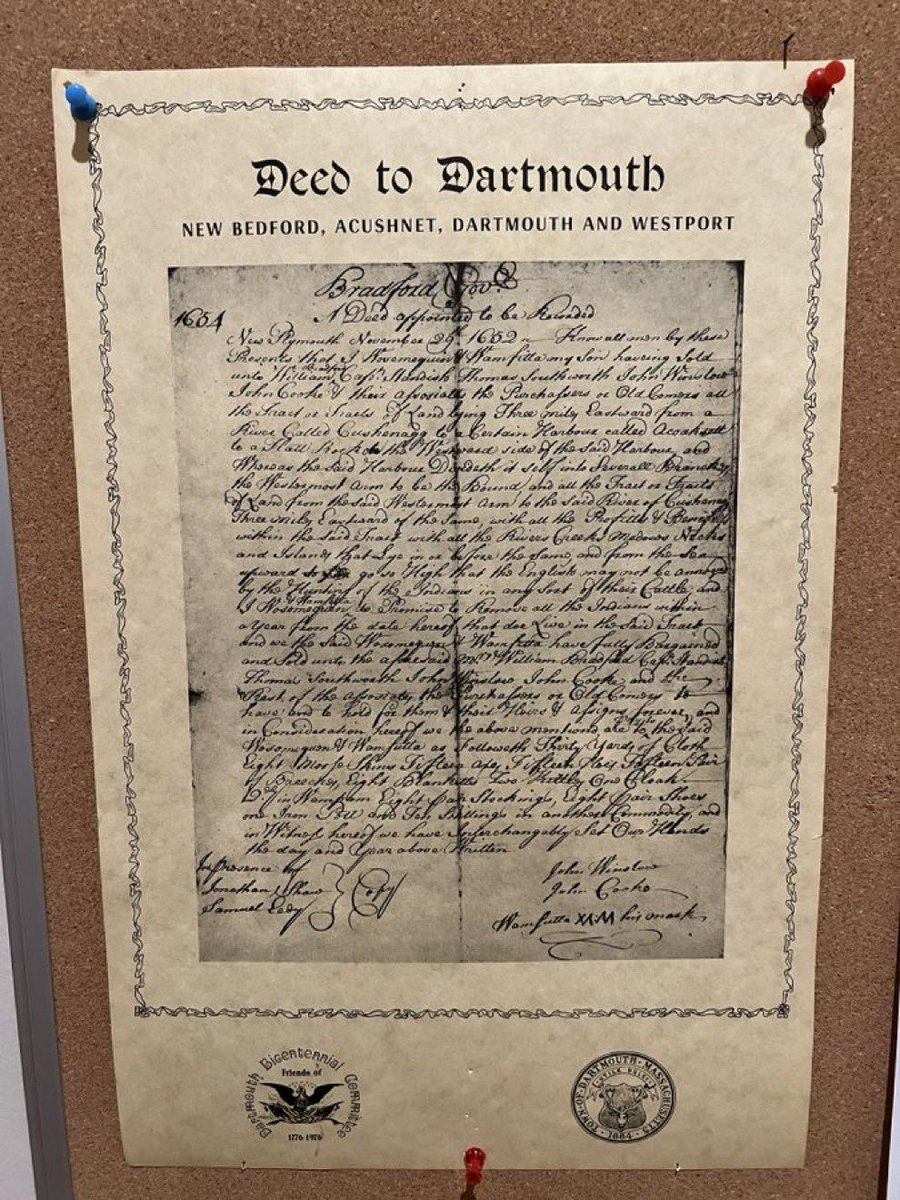 Deed to Dartmouth
NEW BEDFORD, ACUSHNET, DARTMOUTH AND WESTPORT
Bradford Govr
1654 A Deed appointed to be Recorded
New Plymouth November 29th 1652 Know all men by these
Presents that I Wosemequin & Wamsutta my Son having Sold
unto William Bradford Capt Standish Thomas Southworth John Winslow
John Cooke & their associates the Purchassers or Old Comers all
the Tract or Tracts of Land lying Three miles Eastward from a
River Called Cushenagg to a Certain Harbour called Acoaksett
to a flatt Rock on the Westward side of the Said Harbour, and
Whereas the Said Harbour Divideth it self into Severall Branches
the Westermost arm to be the Bound, and all the Tract or Tracts
of Land from the Said Westermost Arm to the Said River of Cushenagg
Three miles Eastward of the Same, with all the Profitts & Benefitts
within the Said Tract with all the Rivers Creeks Medows Necks
and Islands that Lye in or before the Same, and from the Sea
upward to go so High that the English may not be annoyed
by the Hunting of the Indians in any Sort of their Cattle, and
I Wosomequen & Wamsutta do Promise to Remove all the Indians within
a Year from the date hereof that doe Live in the Said Tract
and we the Said Wosomequen & Wamsutta have fully Bargained
and Sold unto the aforesaid Mr William Bradford Capt Standish
Thomas Southworth John Winslow John Cooke and the
Rest of the associates the Purchassers or Old Comers to
have and to hold for them & their Heirs & Assigns forever, and
in Consideration hereof we the above mentioned are to the Said
Wosomequen & Wamsutta as followeth Thirty Yards of Cloth
Eight Moose Skins Fifteen axes Fifteen Hoes Fifteen Pair
of Breeches, Eight Blanketts Two Kettles One Cloak
in Wampam Eight Pair Stockings, Eight Pair Shoes
one Iron Pott and Ten Shillings in another Commodity, and
in Witness hereof we have Interchangably Set Our Hands
the day and Year above Written
In Presence of
Jonathan Shaw
Samuel Eedy
Copy
John Winslow
John Cooke
Wamsutta his mark
Dartmouth Bicentennial Committee
Friends of
1776-1976
TOWN·OF·DARTMOUTH·MASSACHUSETTS
·1664·